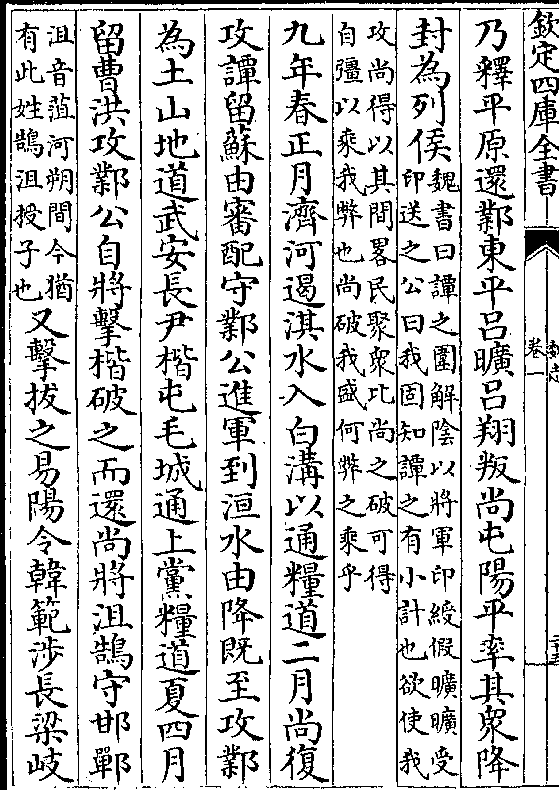 欽定四庫全書
卷一
乃釋平原還鄴東平呂曠呂翔叛尚屯陽平率其衆降
封為列侯
魏書曰譚之圍解陰以將軍印綬假曠曠受
印送之公曰我固知譚之有小計也欲使我
攻尚得以其間畧民聚衆比尚之破可得
自彊以乘我弊也尚破我盛何弊之乘乎
九年春正月濟河遏淇水入白溝以通糧道二月尚復
攻譚留蘇由審配守鄴公進軍到洹水由降既至攻鄴
為土山地道武安長尹楷屯毛城通上黨糧道夏四月
留曹洪攻鄴公自將擊楷破之而還尚將沮鵠守邯鄲
沮音葅河朔間今猶
有此姓鵠沮授子也
又擊拔之易陽令韓範涉長梁岐